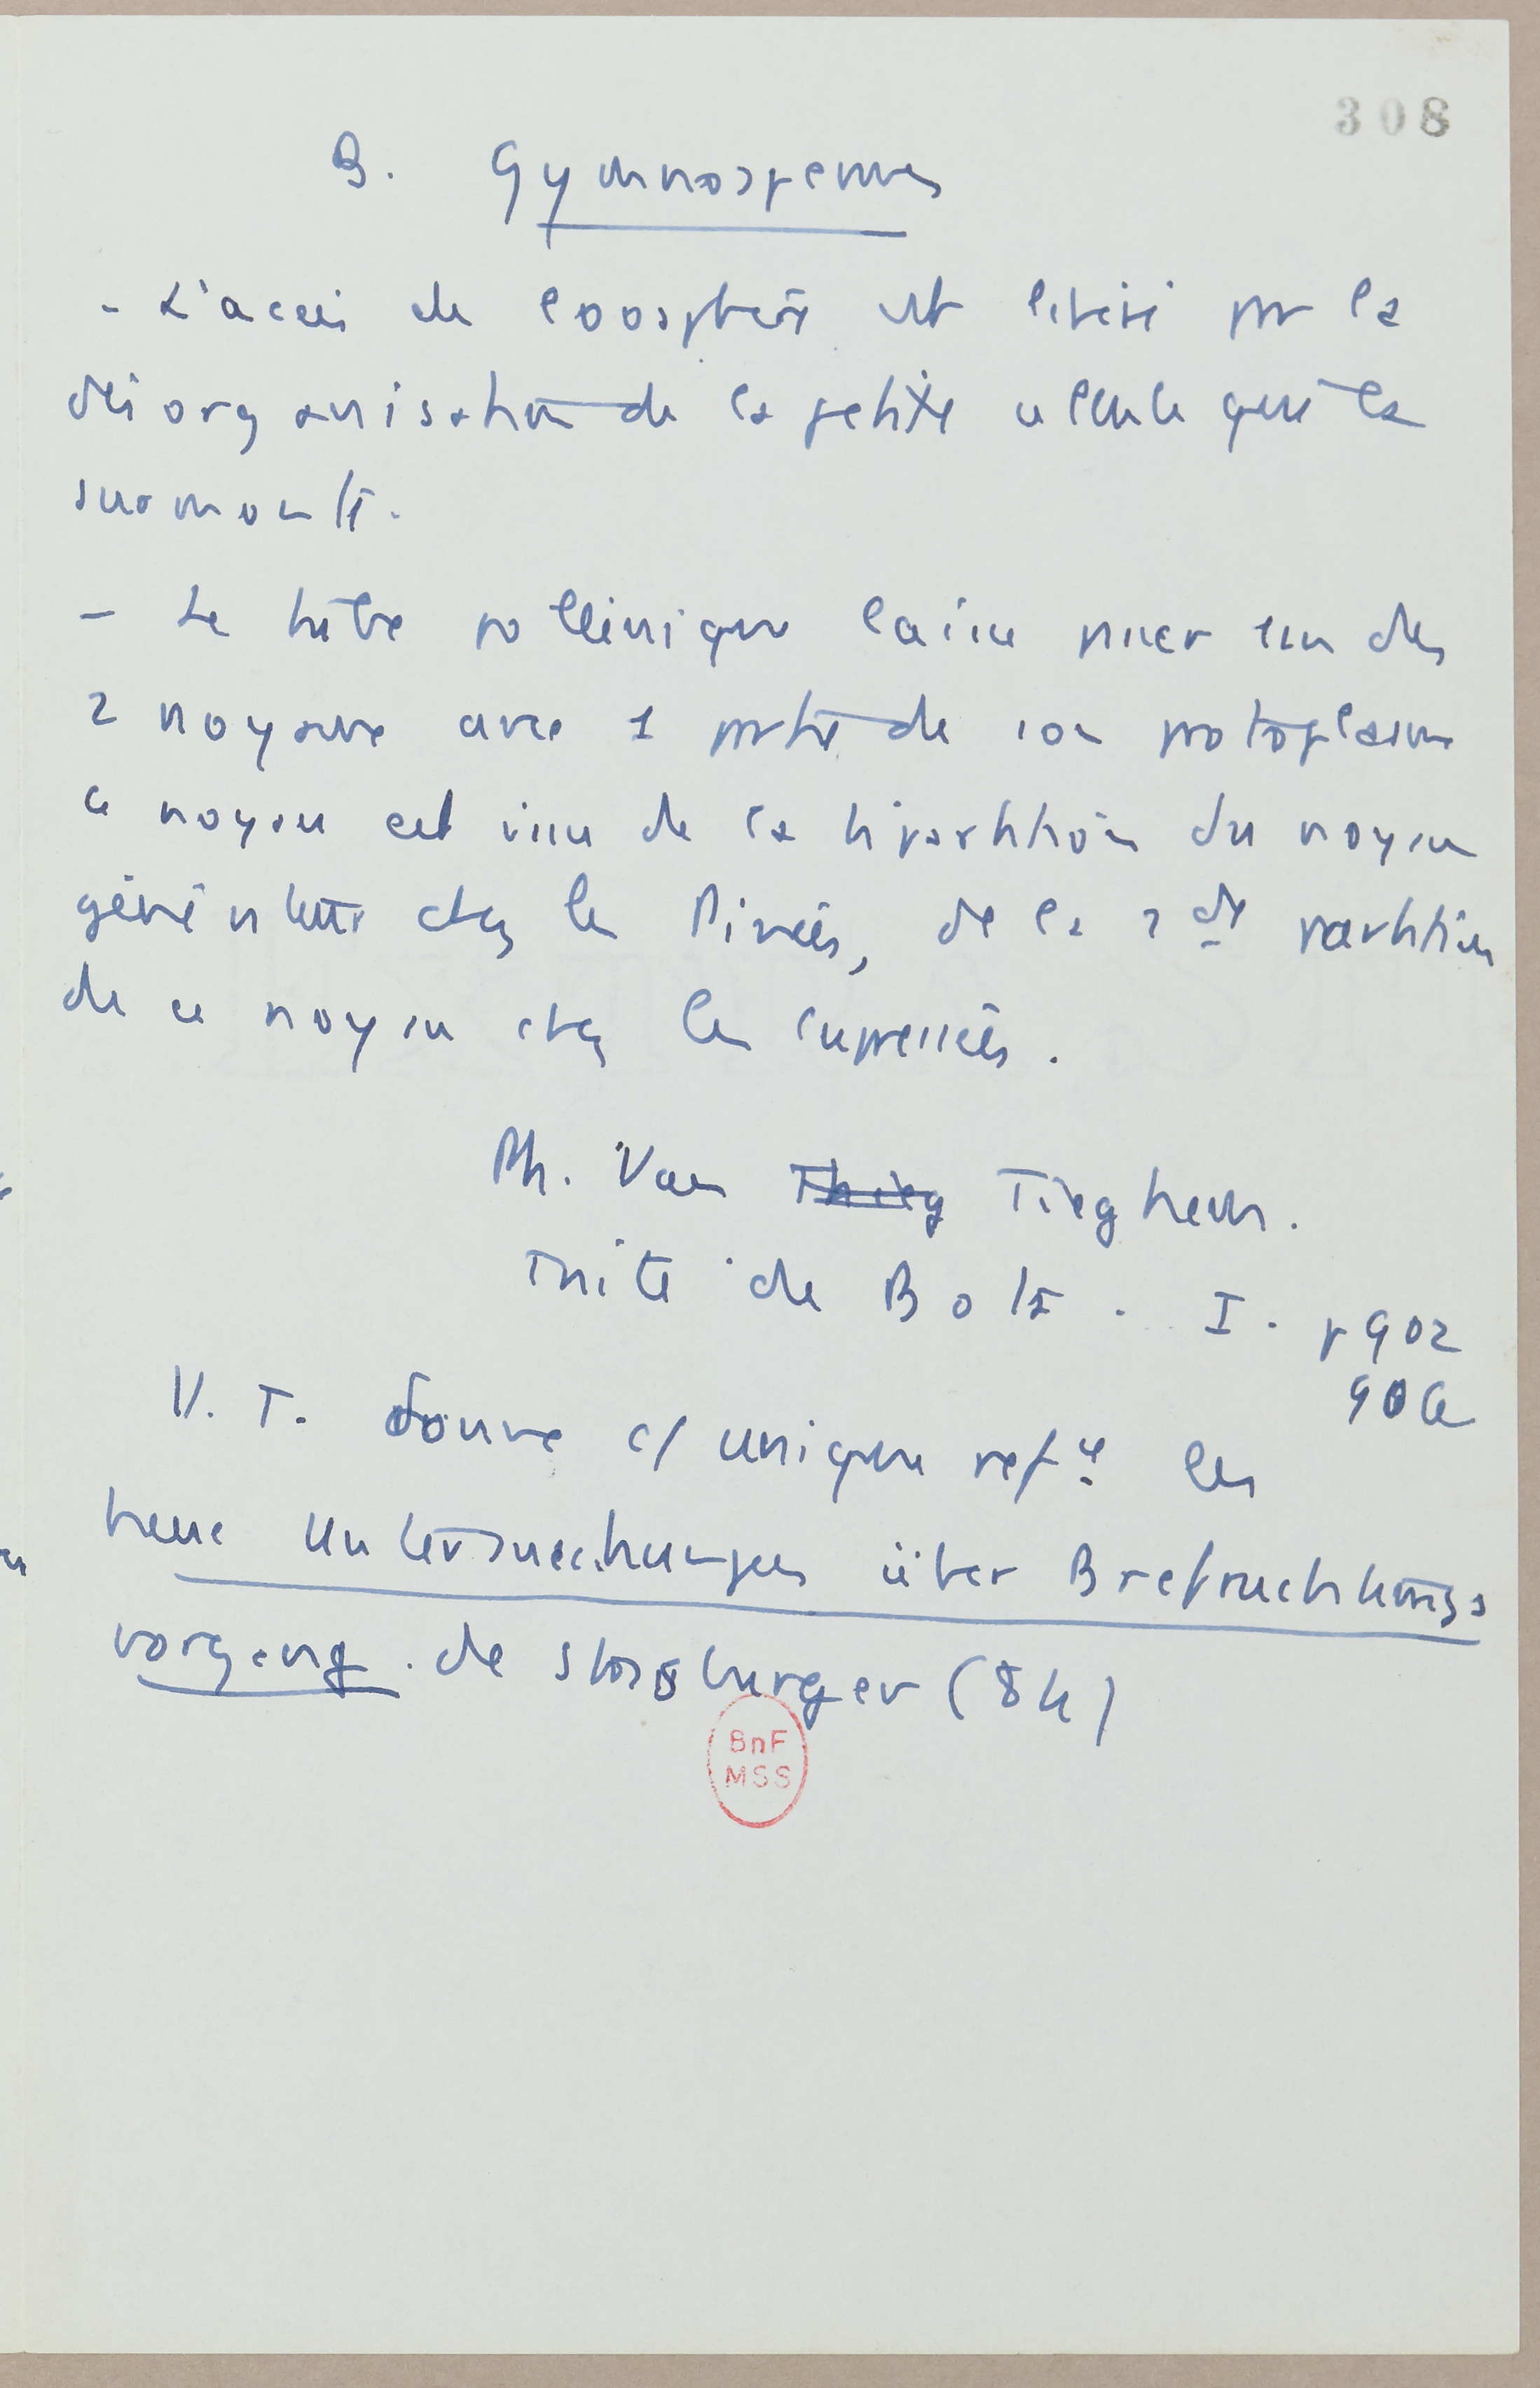 308
B. Gymnospermes
- L'accès de l'oosphère est libéré par la
désorganisation de la petite cellule qui la
surmonte.
- Le tube pollinique laisse passer un des
2 noyaux avec 1 partie de son protoplasme
ce noyau est issu de la bipartition du noyau
générateur chez les Pinées, de la 2de partition
de ce noyau chez les Cupressées.
Ph. Van Thieg Tieghem.
Traité de Bota. I. p 902
904
V. T. donne c/ unique refce les
neue Untersuchungen über Brefruchtungs
vorgang. de Strasburger (84)
BnF
MSS